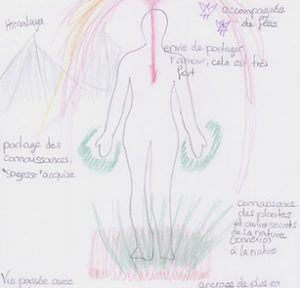 Himalaya
accompagnée
de fées
envie de partager
l'amour, cela est très
fort
partage des
connaissances,
"sagesse" acquise
connaissance
des plantes
et autres secrets
de la nature
connexion
à la nature
Vie passée avec
ancrage de plus en